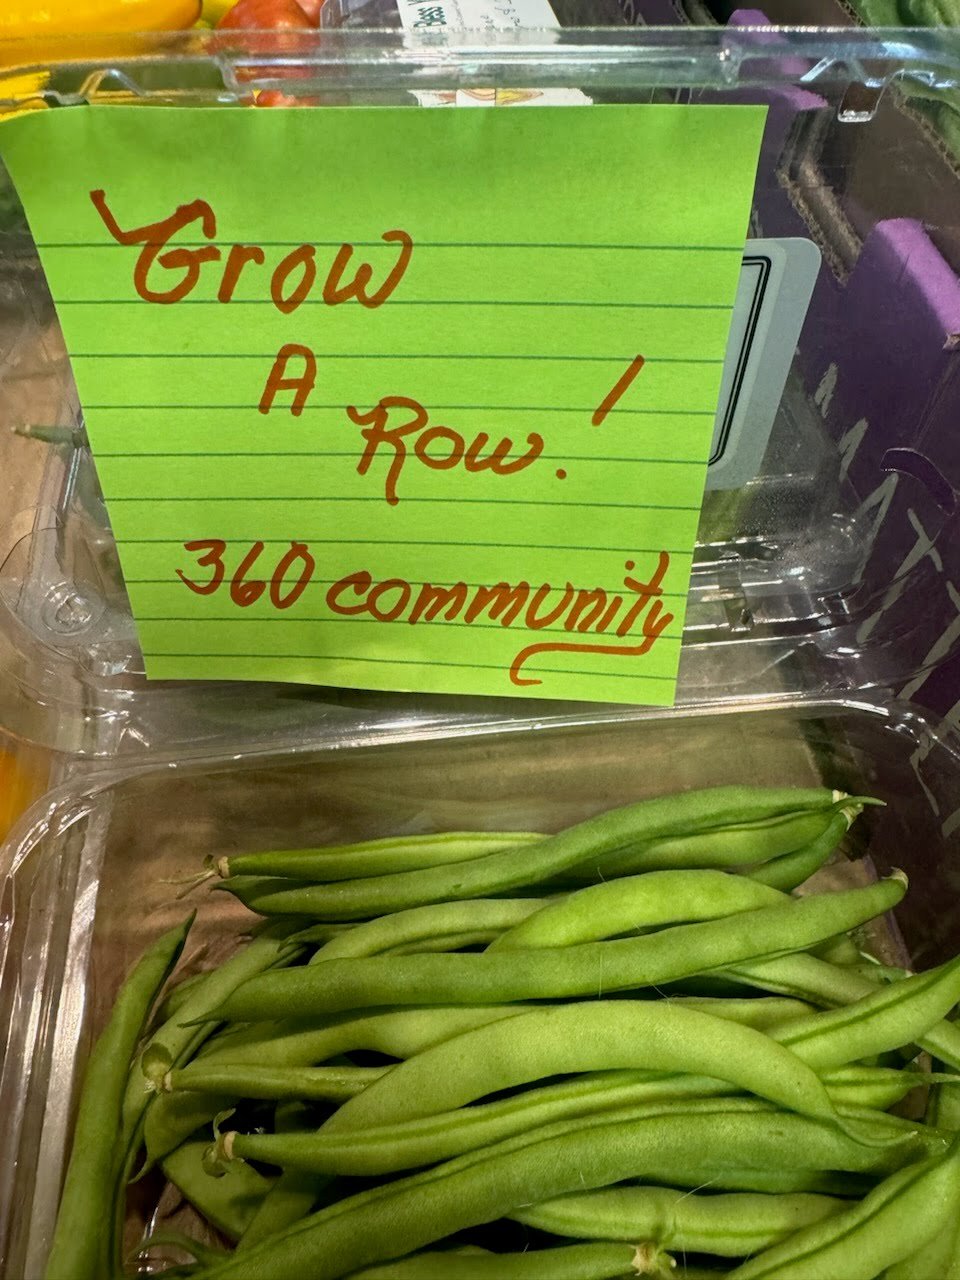 Grow
A
Row!
360 community